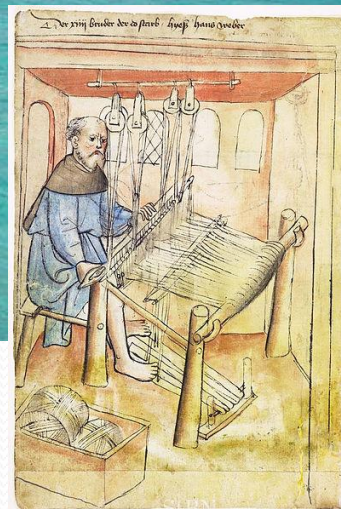 Der xiiij bruder der do starb hyeß hans weber